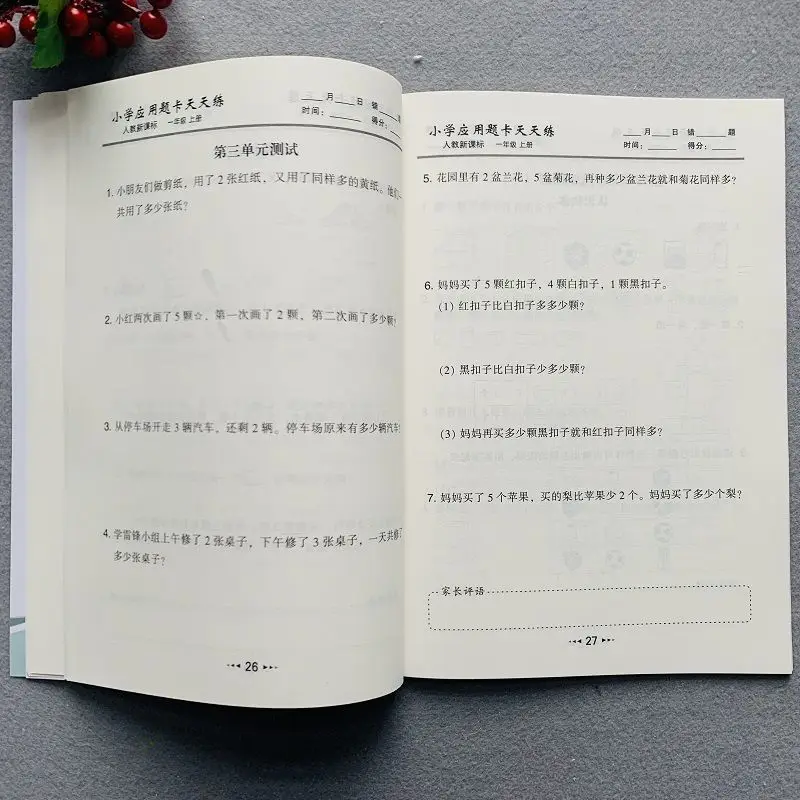 小学应用题卡天天练
人教新课标 一年级 上册
____月____日 错____
时间：______ 得分：____
第三单元测试
1. 小朋友们做剪纸，用了 2 张红纸，又用了同样多的黄纸。他们一
共用了多少张纸？
2. 小红两次画了 5 颗☆，第一次画了 2 颗，第二次画了多少颗？
3. 从停车场开走 3 辆汽车，还剩 2 辆。停车场原来有多少辆汽车？
4. 学雷锋小组上午修了 2 张桌子，下午修了 3 张桌子，一天共修了
多少张桌子？
26
小学应用题卡天天练
人教新课标 一年级 上册
____月____日 错______题
时间：______ 得分：____
5. 花园里有 2 盆兰花，5 盆菊花，再种多少盆兰花就和菊花同样多？
6. 妈妈买了 5 颗红扣子，4 颗白扣子，1 颗黑扣子。
(1) 红扣子比白扣子多多少颗？
(2) 黑扣子比白扣子少多少颗？
(3) 妈妈再买多少颗黑扣子就和红扣子同样多？
7. 妈妈买了 5 个苹果，买的梨比苹果少 2 个。妈妈买了多少个梨？
家长评语
27